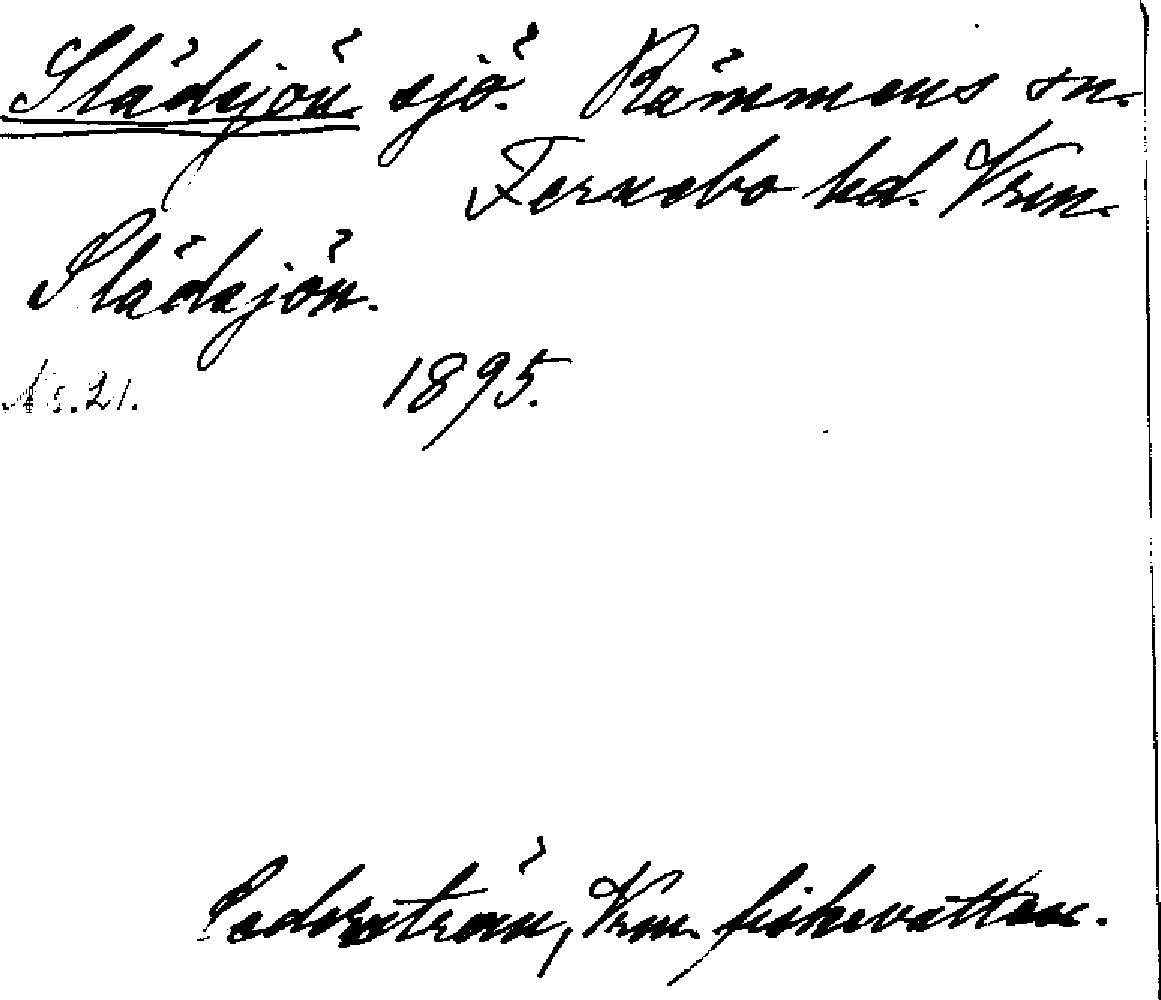 Slädsjön sjö. Rämmens sn.
Fernebo hd. Vrm.
Slädsjön.
Nr. 21. 1895.
Cederström, Vrm. fiskevatten.